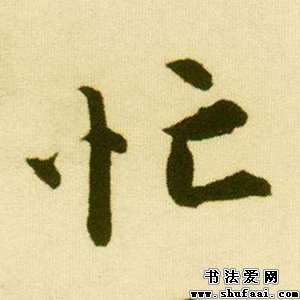 忙
书法爱网
www.shufaai.com